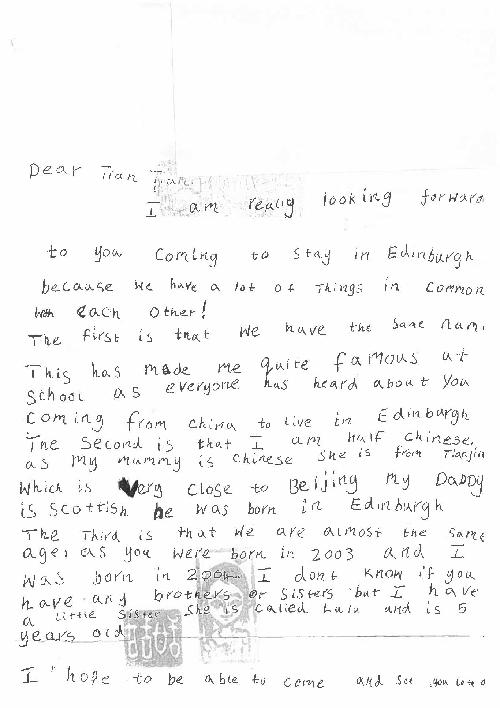 Dear Tian Tian
I am really looking forward
to you coming to stay in Edinburgh
because we have a lot of things in common
with each other!
The first is that we have the same nam
This has made me quite famous at
school as everyone has heard about you
coming from china to live in Edinburgh
The second is that I am half chinese.
as my mummy is chinese she is from Tianjin
which is very close to Beijing my Daddy
is scottish he was born in Edinburgh
The Third is that we are almost the same
ages as you were born in 2003 and I
was born in 2004 I dont know if you
have any brothers or sisters but I have
a little sister she is called Lulu and is 5
years old
I hope to be able to come and see you